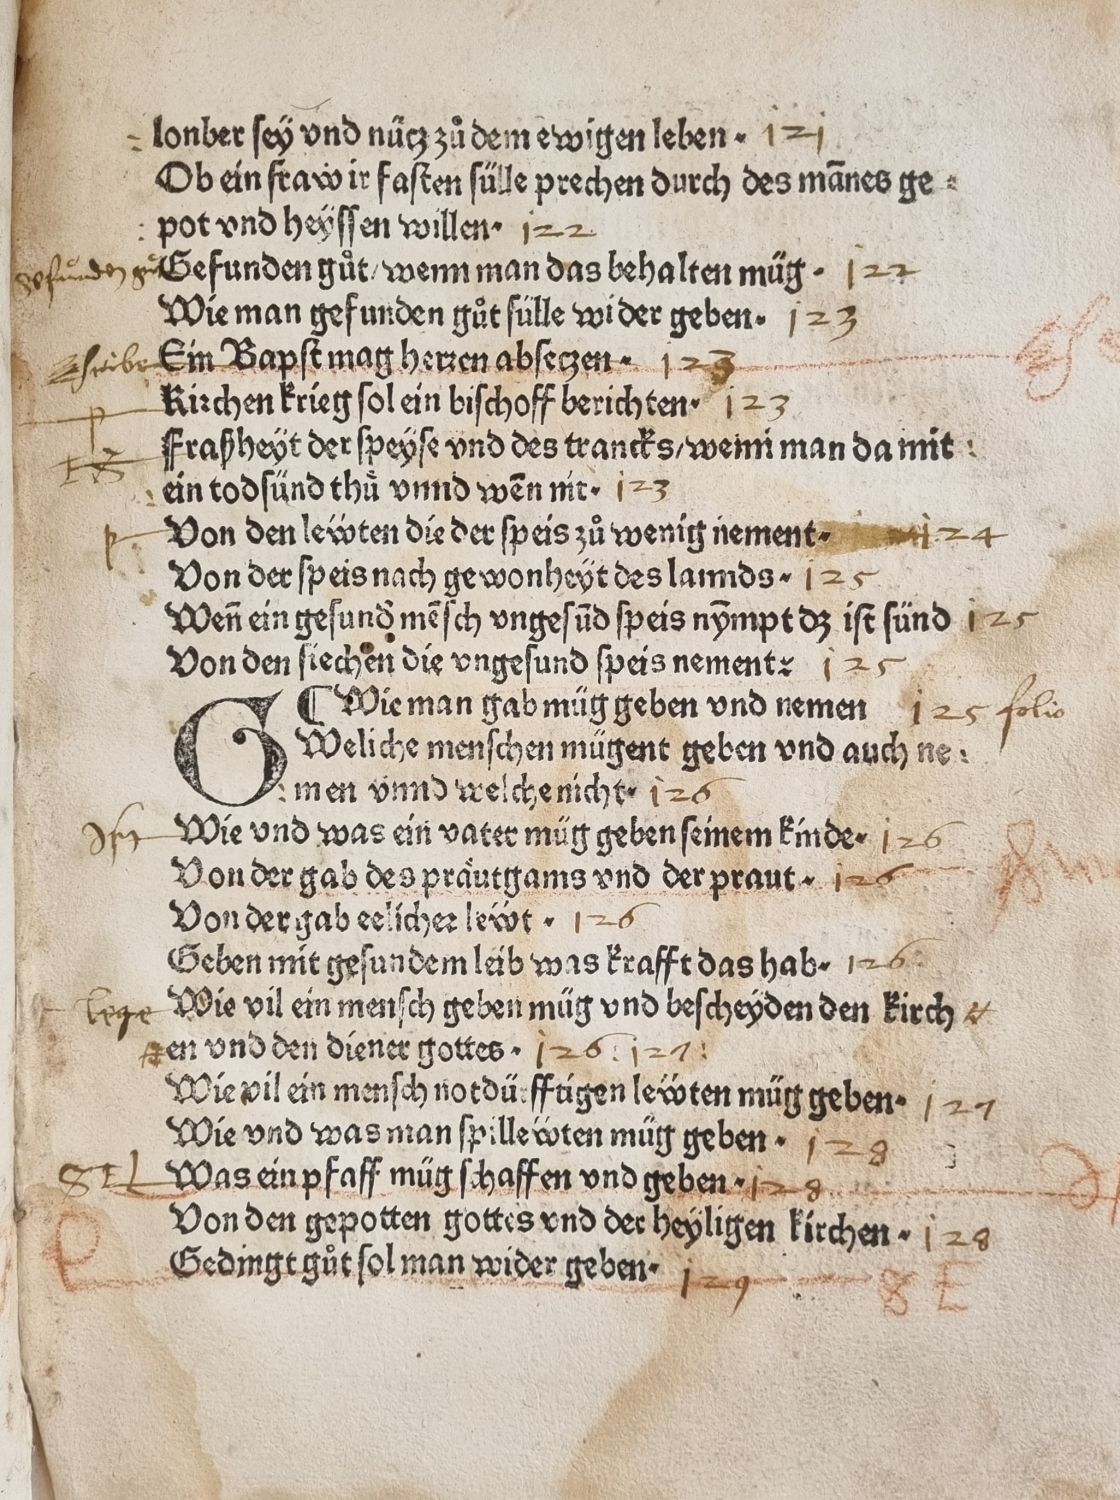 lonber sey vnd nücz zů dem ewigen leben · 121
Ob ein fraw ir fasten sülle prechen durch des mãnes ge
pot vnd heÿssen willen · 122
gefunden gůt Gefunden gůt / wenn man das behalten müg · 122
Wie man gefunden gůt sülle wider geben · 123
Ein Bapst mag herren absetzen · 123
Kirchen krieg sol ein bischoff berichten · 123
Fraßheÿt der speÿse vnd des trancks / wenn man da mit
ein todsünd thů vnnd wẽn nit · 123
Von den leẅten die der speis zů wenig nement · 124
Von der speis nach gewonheÿt des lannds · 125
Weñ ein gesund mẽsch vngesũd speis nÿmpt dz ist sünd 125
Von den siechen die vngesund speis nement 125
G ¶ Wie man gab müg geben vnd nemen 125 folio
Weliche menschen mügent geben vnd auch ne
men vnnd welche nicht · 126
Wie vnd was ein vater müg geben seinem kinde · 126
Von der gab des präutgams vnd der praut · 126
Von der gab eelicher leẅt · 126
Geben mit gesundem leib was krafft das hab · 126
lege Wie vil ein mensch geben müg vnd bescheÿden den kirch
en vnd den diener gottes · 126 : 127 :
Wie vil ein mensch notdürfftigen leẅten müg geben · 127
Wie vnd was man spilleẅten müg geben · 128
Was ein pfaff müg schaffen vnd geben · 128
Von den gepotten gottes vnd der heÿligen kirchen · 128
Gedingt gůt sol man wider geben · 129